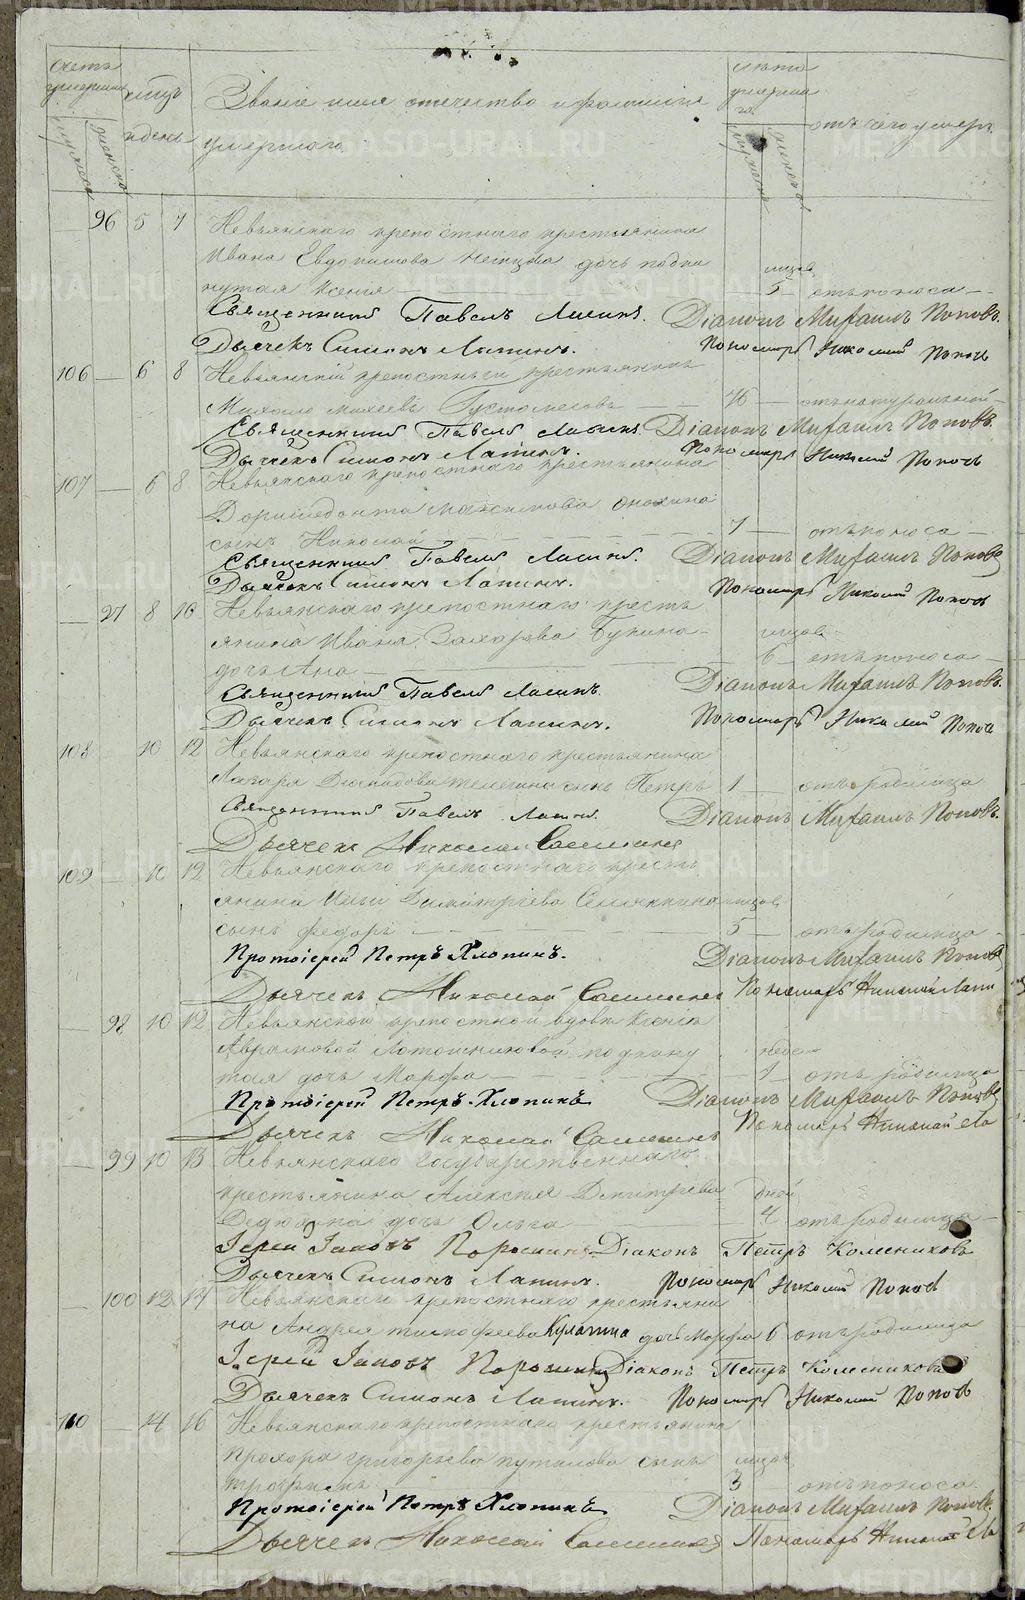 счетъ умершихъ
мѣсяцъ и день
Званіе имя отечество и фамилія умершаго.
лѣта умершаго
отъ чего умеръ
мужеска
женска
мужеска
женска
96 5 7 Невьянскаго крепостнаго крестьянина
Ивана Евдокимова дочь подки
нутая Ксенія месяц. 5 отъ поноса
Священникъ Павелъ Діаконъ Михаилъ Поповъ.
Дьячекъ Симонъ Лапинъ. Пономарь Николай Поповъ
106 — 6 8 Невьянскій крепостный крестьянинъ
Михайло Михеевъ 76 отъ натуральной
Священникъ Павелъ Діаконъ Михаилъ Поповъ.
Дьячекъ Симонъ Лапинъ. Пономарь Николай Поповъ
107 — 6 8 Невьянскаго крепостнаго крестьянина
Дормедонта Максимова
сынъ Николай 1 отъ поноса
Священникъ Павелъ Діаконъ Михаилъ Поповъ
Дьячекъ Симонъ Лапинъ. Пономарь Николай Поповъ
— 97 8 10 Невьянскаго крепостнаго кресть
янина Ивана Захарова месяцов
дочь Ана 6 отъ поноса
Священникъ Павелъ Діаконъ Михаилъ Поповъ.
Дьячекъ Симонъ Лапинъ. Пономарь Николай Поповъ
108 — 10 12 Невьянскаго крепостнаго крестьянина
Лазаря сынъ Петръ 1 отъ родимца
Священникъ Павелъ Діаконъ Михаилъ Поповъ.
Дьячекъ Николай
109 — 10 12 Невьянскаго крепостнаго кресть
янина Ильи Димитріева месяцов
сынъ Федоръ 5 отъ родимца
Протоіерей Петръ Хлопинъ. Діаконъ Михаилъ Поповъ
Дьячекъ Николай Пономарь Николай
— 98 10 12 Невьянской крепостной вдовы Ксеніи
Аврамовой подкину неде
тая дочь Марфа 1 отъ родимца
Протоіерей Петръ Хлопинъ Діаконъ Михаилъ Поповъ
Дьячекъ Николай Пономарь Николай
— 99 10 13 Невьянскаго государственнаго
крестьянина Алексея Дмитріева дней
дочь Ольга 4 отъ родимца
Іерей Іаковъ Діаконъ Петръ Колесниковъ
Дьячекъ Симонъ Лапинъ. Пономарь Николай Поповъ
— 100 12 14 Невьянскаго крепостнаго крестьяни
на Андрея Тимофеева Кулагина дочь Марфа 6 отъ родимца
Іерей Іаковъ Діаконъ Петръ Колесниковъ
Дьячекъ Симонъ Лапинъ. Пономарь Николай Поповъ
110 — 14 16 Невьянскаго крепостнаго крестьянина
Прохора Григорьева Путилова сынъ месяц.
Трофимъ 3 отъ поноса.
Протоіерей Петръ Хлопинъ Діаконъ Михаилъ Поповъ.
Дьячекъ Николай Пономарь Николай
METRIKI.GASO-URAL.RU